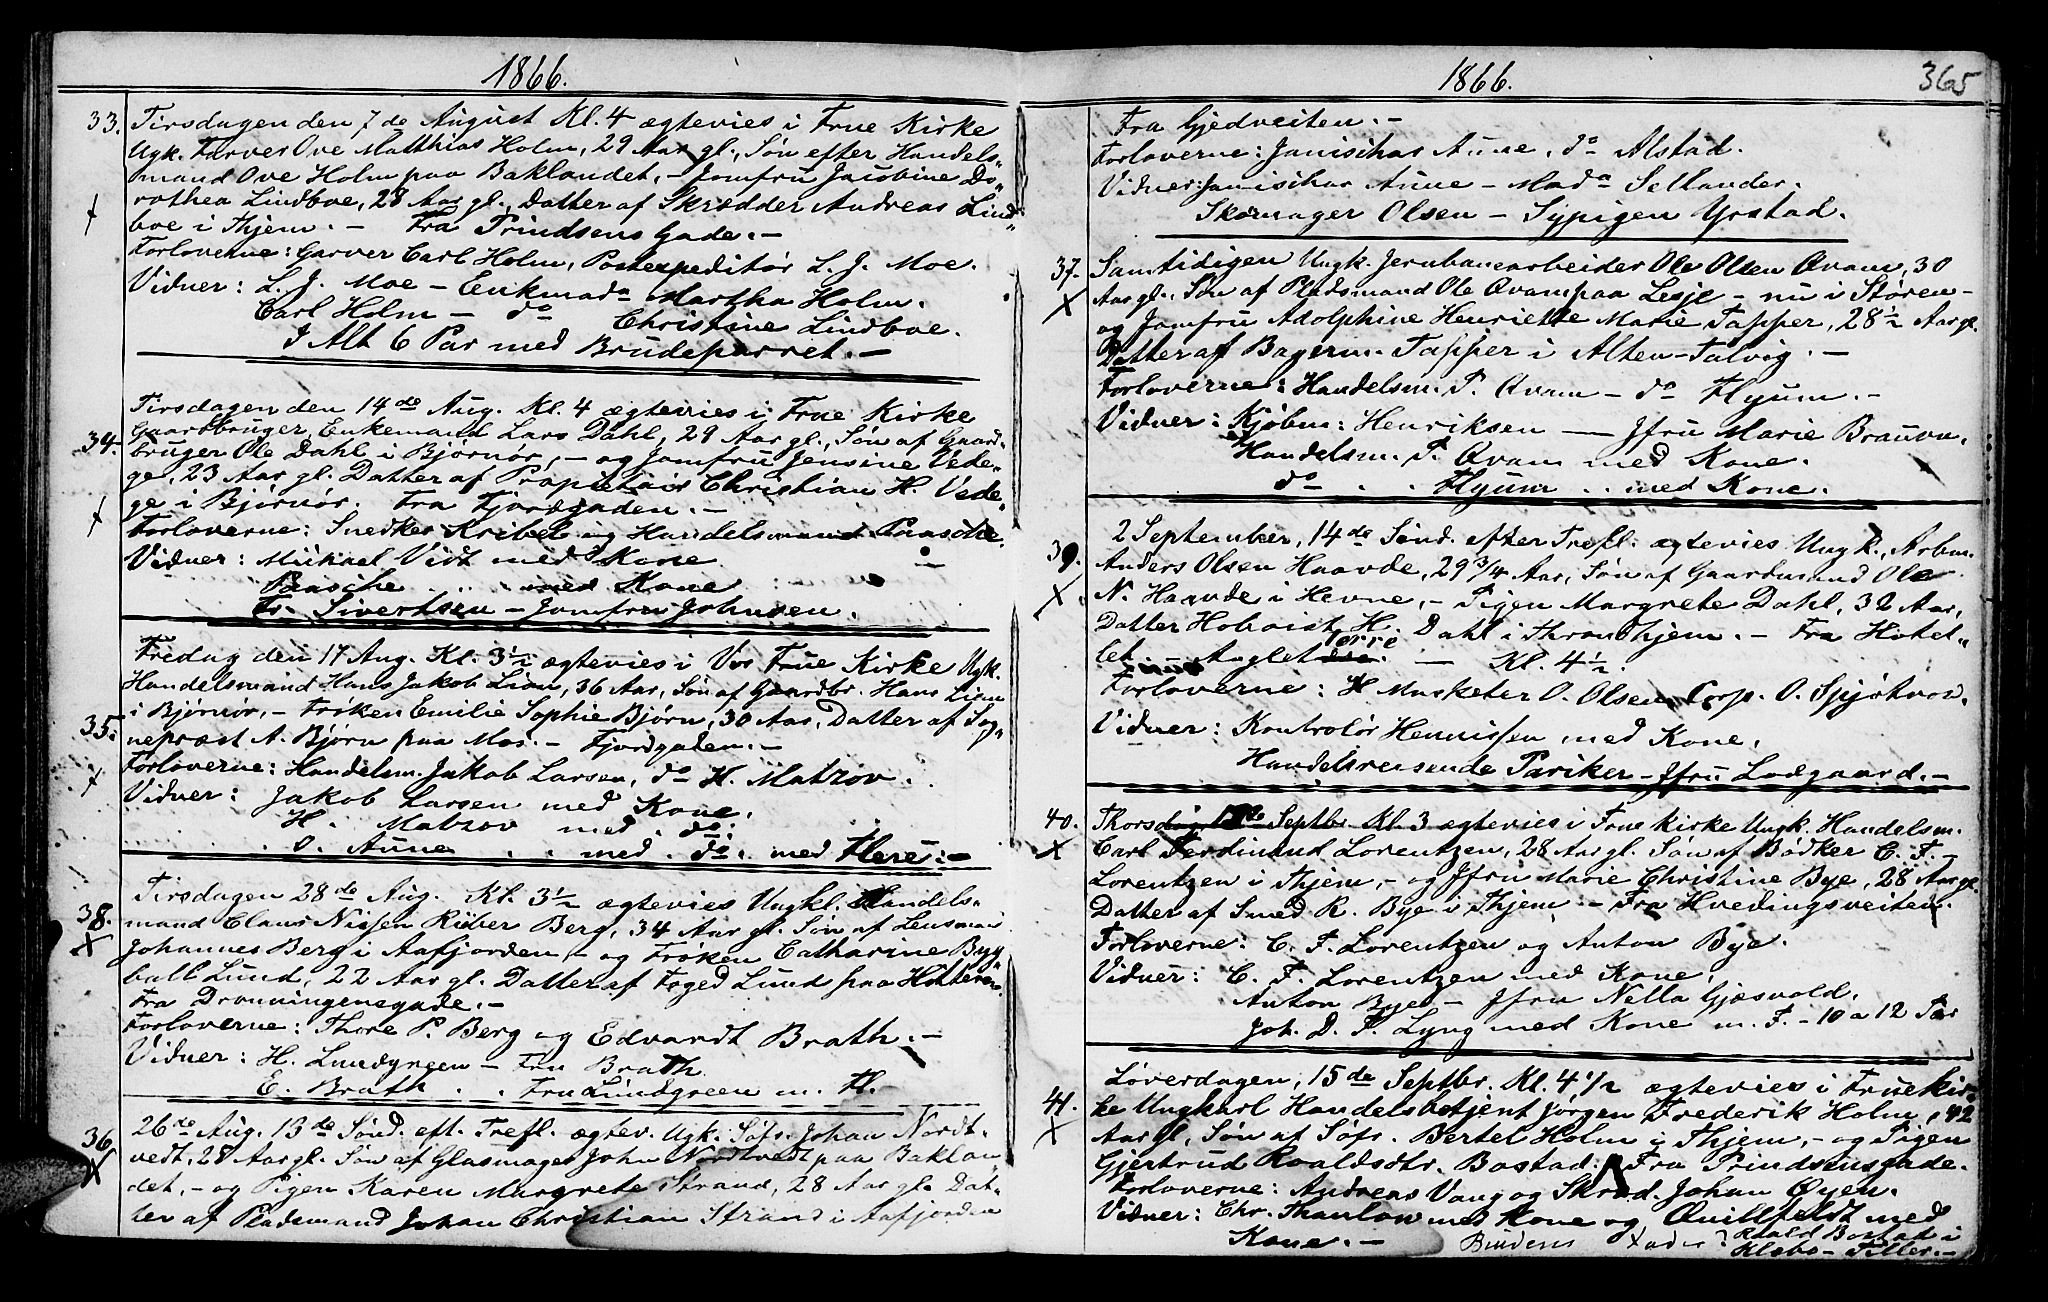 1866.
33. Tirsdagen den 7de August Kl. 4 ægtevies i Frue Kirke
Ugk. Farver Ove Matthias Holm, 29 Aar gl., Søn efter Handels-
mand Ove Holm paa Baklandet, - Jomfru Jacobine Do-
rothea Lindboe, 28 Aar gl., Datter af Skrædder Andreas Lind-
boe i Thjem. - Fra Prindsens Gade. -
Forloverne: Garver Carl Holm, Postexpeditør L. J. Moe.
Vidner: L. J. Moe - Enkmada Martha Holm.
Carl Holm - do Christine Lindboe.
I Alt 6 Par med Brudeparret. -
Tirsdagen den 14de Aug. Kl. 4 ægtevies i Frue Kirke
34. Gaardbruger, Enkemand Lars Dahl, 29 Aar gl., Søn af Gaard-
bruger Ole Dahl i Bjørnør, - og Jomfru Jensine Vede-
ge, 23 Aar gl. Datter af Propietair Christian H. Vede-
ge i Bjørnør. Fra Fjordgaden. -
Forloverne: Snedker Kribel og Handelsmand Paasche.
Vidner: Michael Vidt med Kone
Paasche . . med Kone
Fr. Sivertsen - Jomfru Johnsen.
Fredag den 17 Aug. Kl. 3½ ægtevies i Vor Frue Kirke Ugk.
Handelsmand Hans Jakob Lian, 36 Aar, Søn af Gaardbr. Hans Lian
35. i Bjørnør, - Frøken Emilie Sophie Bjørn, 30 Aar, Datter af Sog-
nepræst A. Bjørn paa Mos. - Fjordgaden. -
Forloverne: Handelsm. Jakob Larsen, do H. Matzov.
Vidner: Jakob Larsen med Kone.
H. Matzov med do.
O. Aune . . med do. med Flere. -
Tirsdagen 28de Aug. Kl. 3½ ægtevies Ungkl. Handels-
38. mand Claus Nissen Riiber Berg, 34 Aar gl. Søn af Lensman
Johannes Berg i Aafjorden, - og Frøken Catharine Byg
ball Lund, 22 Aar gl. Datter af Foged Lund paa
Fra Dronningensgade. -
Forloverne: Thore P. Berg og Edvardt Brath. -
Vidner: H. Lundgreen - Fru Brath.
E. Brath . . Fru Lundgreen m. Fl.
36. 26de Aug. 13de Sønd. eft. Trefl. ægtev. Ugk. Søfr. Johan Nordt-
vedt, 28 Aar gl. Søn af Glasmager John Nordtvedt paa Baklan
det, - og Pigen Karen Margrete Strand, 28 Aar gl. Dat-
ter af Pladsmand Johan Christian Strand i Aafjorden
1866. 365
Fra Gjedveiten. -
Forloverne: Janischar Aune, do Alstad.
Vidner: Janischar Aune - Mada Sellander.
Skomager Olsen - Sypigen Yrstad.
37. Samtidigen Ungk. Jernbanearbeider Ole Olsen Qvam, 30
Aar gl., Søn af Pladsmand Ole Qvam paa Lesje - nu i Støren -
og Jomfru Adolphine Henriette Marie Tapper, 28½ Aar gl.
Datter af Bagerm. Tapper i Alten-Talvig. -
Forloverne: Handelsm. P. Qvam - do Flyum. -
Vidner: Kjøbm: Henriksen - Jfru Marie Brauvn.
Handelsm. P. Qvam med Kone.
do . . Flyum . . med Kone.
2 September, 14de Sønd. efter Trefl. ægtevies Ungk., Arbm.
39. Anders Olsen Haavde, 29 3/4 Aar, Søn af Gaardmand Ole
N. Haavde i Hevne, - Pigen Margrete Dahl, 32 Aar,
Datter H. Dahl i Throndhjem. - Fra Hotel-
let - Anglet erre. - Kl. 4½.
Forloverne: Musketer O. Olsen, Corp. O. Spjøtvold.
Vidner: Kontrolør Hennissen med Kone.
Handelsreisende Pariker - Jfru Lodgaard. -
40. Thorsdag Septbr. Kl. 3 ægtevies i Frue Kirke Ungk. Handelsm.
Carl Ferdinand Lorentzen, 28 Aar gl. Søn af Bødker C. F. -
Lorentzen i Thjem, - og Jfru Marie Christine Bye, 28 Aar gl.
Datter af Smed R. Bye i Thjem - Fra Hvedingsveiten.
Forloverne: C. F. Lorentzen og Anton Bye.
Vidner: C. F. Lorentzen med Kone.
Anton Bye - Jfru Nella Gjæsvold.
Joh. D. P. Lyng med Kone m. F. - 10 a 12 Par
Løverdagen, 15de Septbr. Kl. 4½ ægtevies i Frue Kir-
41. ke Ungkarl Handelsbetjent Jørgen Frederik Holm, 42
Aar gl, Søn af Søfr. Bertel Holm i Thjem, - og Pigen
Gjertrud Roaldsdtr. Bostad. Fra Prindsensgade.
Forloverne: Andreas Vang og Skræd. Johan Øyen.
Vidner: Chr. Thaulow med Kone og Qvillfeldt med
Kone. - Brudens Fader: Roald Bostad i
Klæbo - Tiller. -